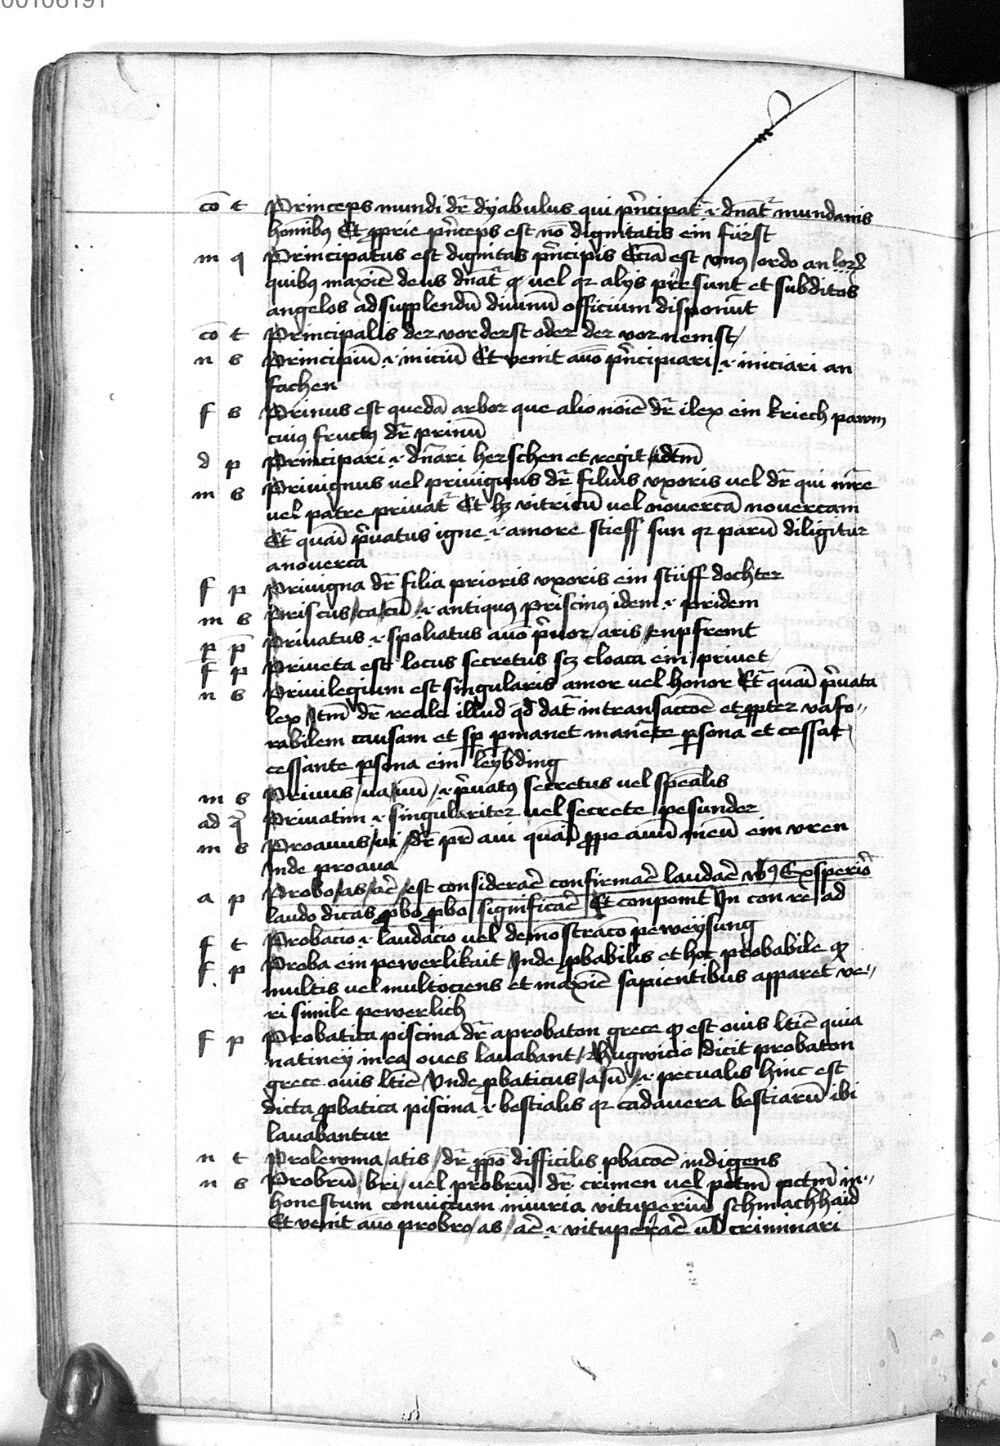 00106191
co t Princeps mundi dr̄ dyabulus qui p̄ncipat᷑ ⁊ dn̄at᷑ mundanis
homībꝰ Et ꝓprie p̄nceps est nō dignitatis ein fürst
m q Principatus est dignitas p̄ncipis Eciā est vnꝰ ordo an
quibꝰ maxīe deus dn̄at᷑ vel qr alys p̄esunt et subditos
angelos ad supplendū diuinū officium disponūt
co t Principalis der vorderst oder der vor nemst
n s Principiū .i. iniciū Et venit aūo p̄ncipiari .i. iniciari an
fachen
f s Prinus est quedā arbor que alio noīe dr̄ ilex ein kriech pawm
cuiꝰ fructꝰ dr̄ prinū
d p Principari .i. dn̄ari herschen et regit
m s Priuignus vel priuignus dr̄ filius vxoris vel dr̄ qui mr̄e
vel patre priuat᷑ Et hꝫ vitricū vel nouercā nouercam
Et᷑ quasi p̄uatus igne .i. amore stieff sun qr parū diligitur
a nouerca
f p Priuigna dr̄ filia prioris vxoris ein stüff dochter
m s Priscus/ca/cū/ .i. antiquꝰ priscinꝰ idem .i. pridem
p p Priuatus .i. spoliatus aūo p̄uor/aris/enpfremt
f p Priueta est locus secretus scꝫ cloaca ein priuet
n s Priuilegium est singularis amor vel honor Et᷑ quasi p̄uata
lex Itm̄ dr̄ reale illud qd̄ dat in transaccōe et ꝓpter vafo〃
rabilem causam et sp̄ ꝑmanet manēte ꝑsona et cessat
cessante ꝑsona ein leybding
m s Priuus/ua/uū/ .i. p̄uatꝰ secretus vel spēalis
ad q Priuatim .i. singulariter vel secrete pesunder
m s Proauus/ui/ dr̄ pr̄ aui quasi ꝓpe auū meū ein vren
Inde proaua
a p Probo/as/ar̄e/ est considerar̄e confirmar̄e laudar̄e
laudo dicas ꝓbo ꝓbo significar̄e Et conponit In con re ad
f t Probacio .i. laudacio vel demōstracō peweysung
f p Proba ein pewerlikait Inde ꝓbabilis et hoc probabile
multis vel multociens et maxīe sapientibus apparet ve〃
ri simile pewerlich
f p Probatica piscina dr̄ a probaton grece est ouis ltīe quia
natiney in ea oues lauabant/ Hugwicio dicit probaton
grece ouis ltīe Vnde ꝓbaticus/a/ū/ .i. pecualis hinc est
dicta ꝓbatica piscina .i. bestialis qr cadauera bestiarū ibi
lauabantur
n t Prolewma/atis/ dr̄ ꝓpō difficilis ꝓbacōe indigens
n s Probrū/bri/ vel probrū dr̄ crimen vel pctm̄ pctm̄ in〃
honestum conuicium iniuria vituperiū schmachhaid
Et venit aūo probro/as/ar̄e .i. vituperar̄e uel criminari